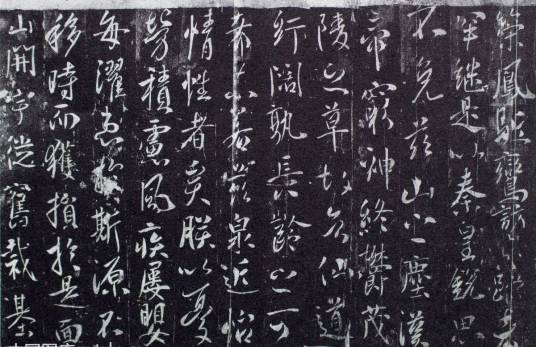 鳳駈鸞
罕繼是以秦皇銳思
不免茲山之塵漢
帝窮神終鬱茂
陵之草故知仙道
紆闊孰長齡之可
希若茲泉近怡
情性者矣朕以憂
勞積慮風疾屢嬰
每濯患於斯源不
移時而獲損於是面
山開宇從舊裁基